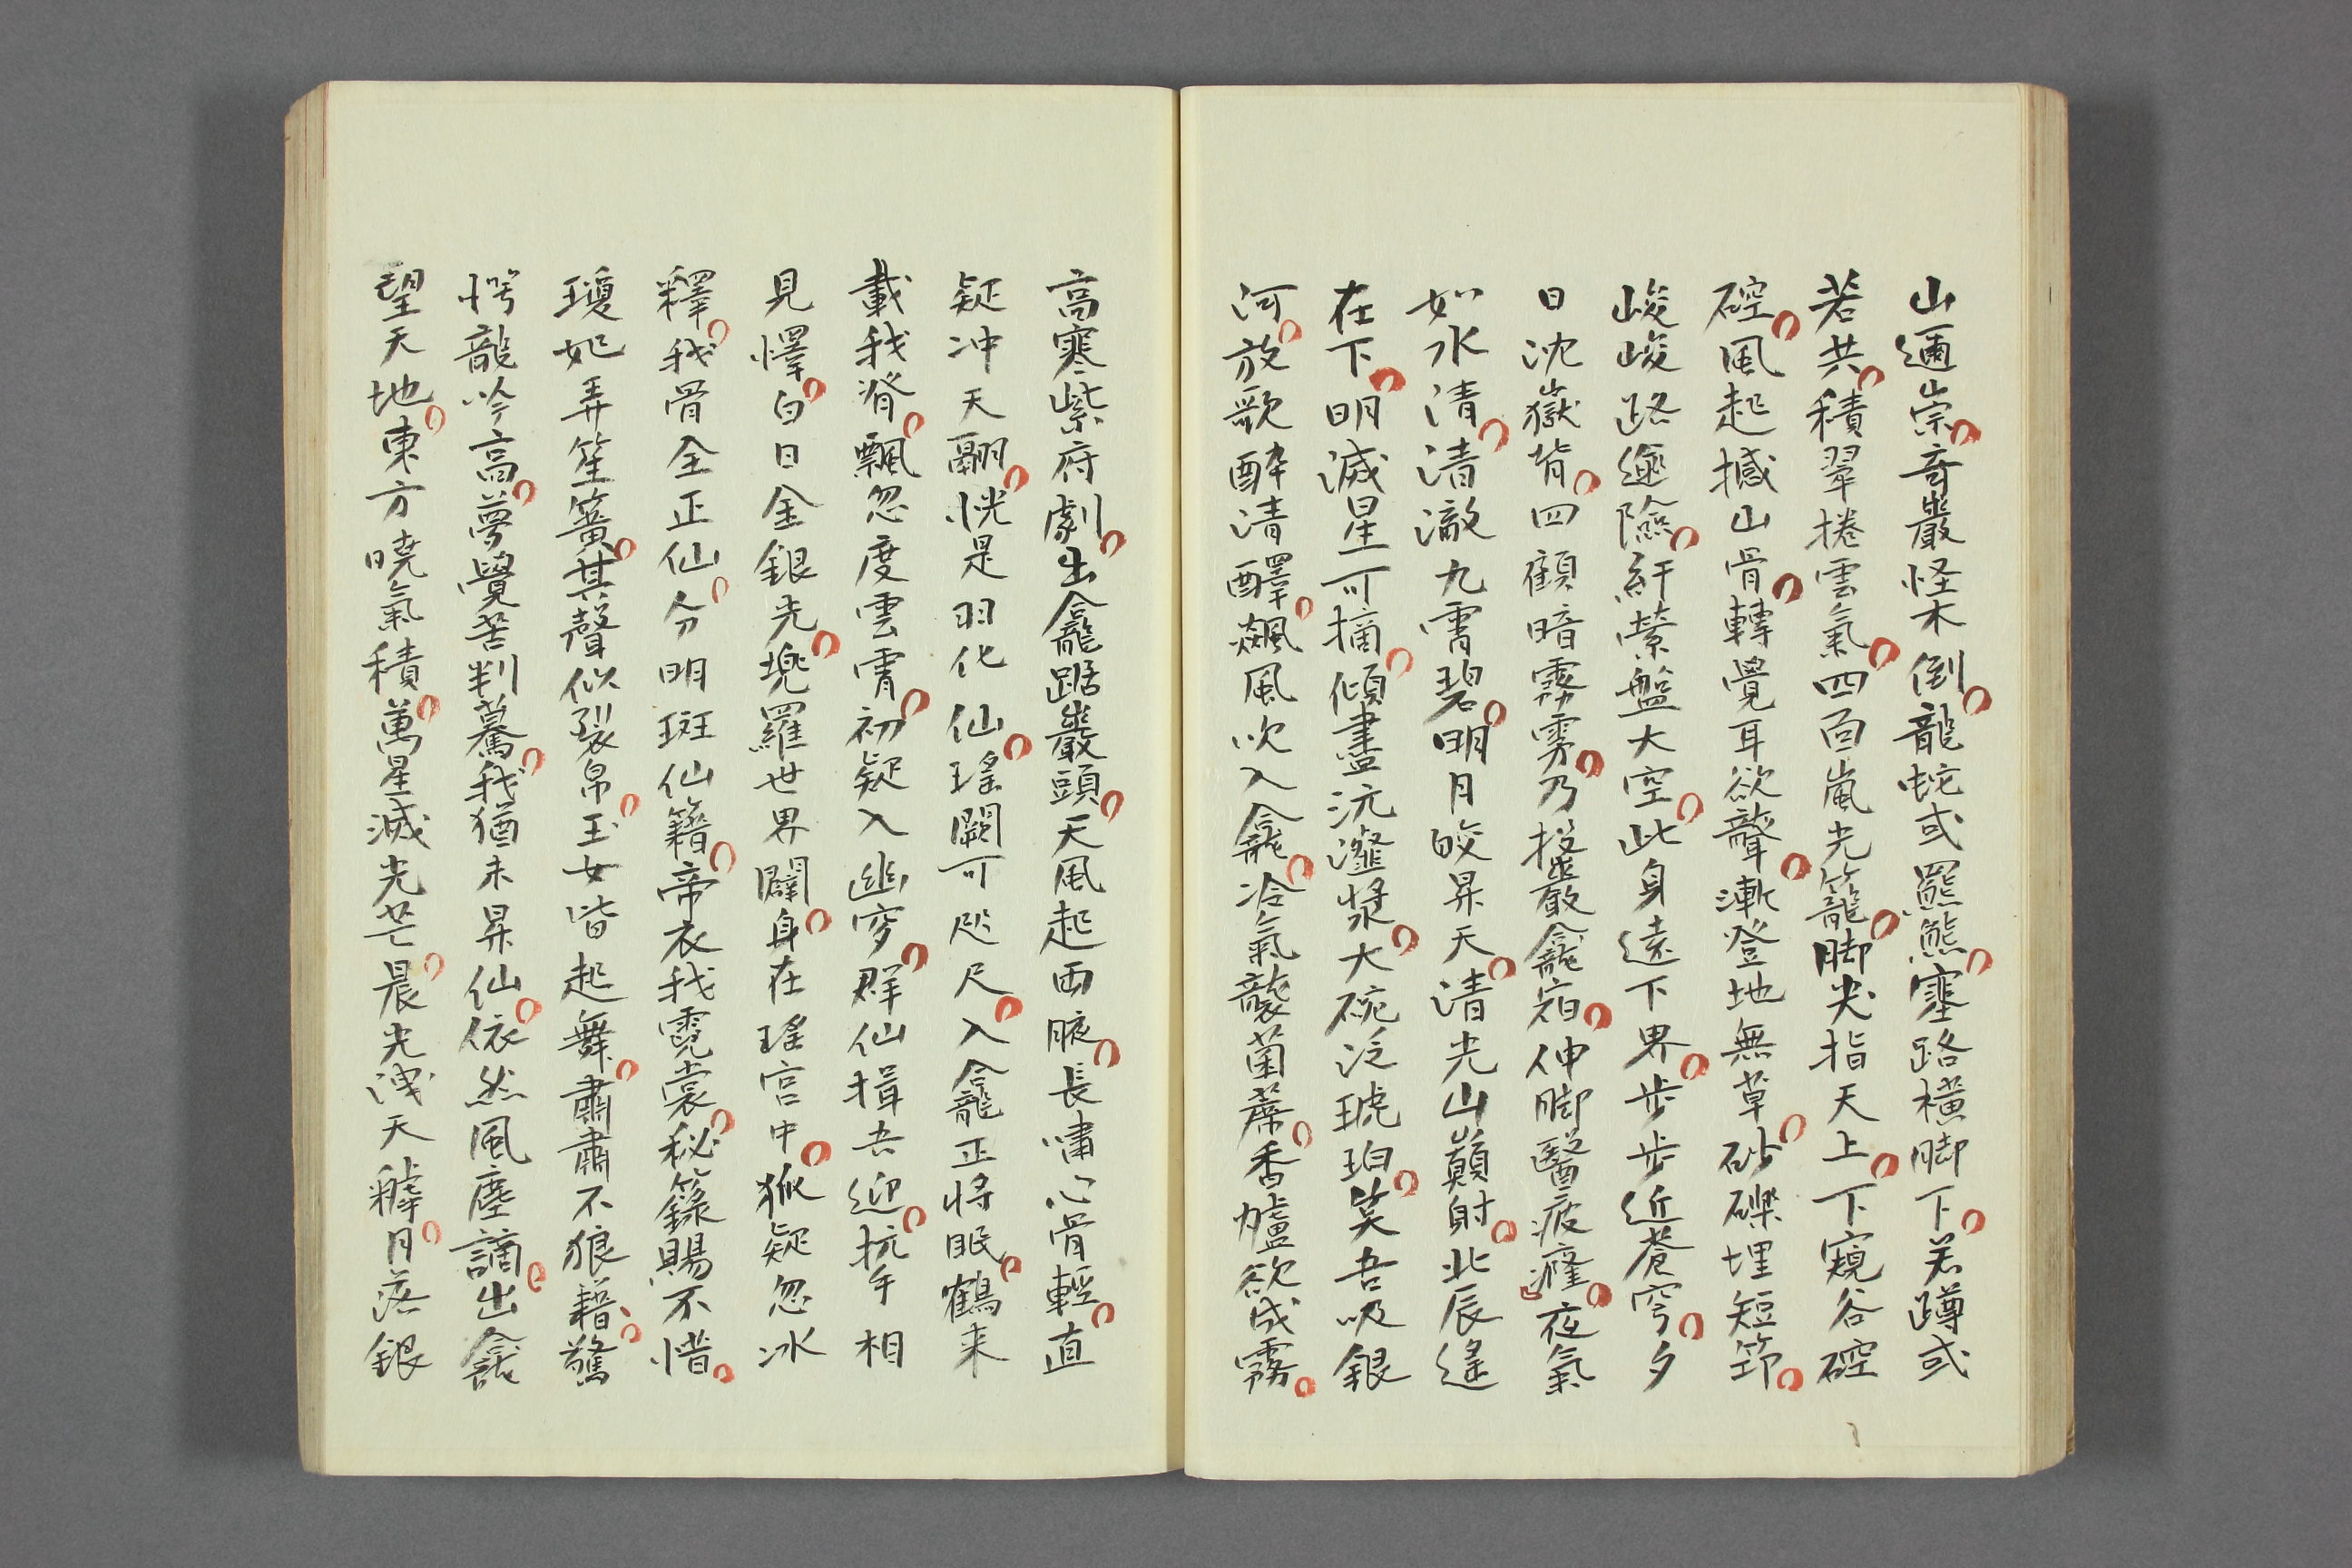 山逎崇奇巖怪木倒龍蛇或羆熊塞路横脚下若蹲或
若共積翠捲雲氣四面嵐光籠脚尖指天上下窺谷硿
硿風起撼山骨轉覺耳欲聾漸登地無草砂礫埋短筇
峻峻路逾險紆縈盤大空此身遠下界歩歩近蒼穹夕
日沈嶽背四顧暗霧雰乃投巖龕宿伸脚醫疲癃夜氣
如水清清澈九霄碧明月皎昇天清光山巓射北辰遙
在下明滅星可摘傾盡沆瀣漿大碗泛琥珀笑吾吸銀
河放歌酔清醳飆風吹入龕冷氣襲菌蓐香爐欲成霧
高寒紫府劇出龕踞巖頭天風起両腋長嘯心骨輕直
疑冲天翮恍是羽化仙瑤闕可咫尺入龕正将眠鶴来
載我脊飄忽度雲霄初疑入幽穸群仙揖吾迎抗手相
見懌白日金銀光兜羅世界闢身在瑤宮中狐疑忽冰
釋我骨全正仙分明斑仙籍帝衣我霓裳秘籙賜不惜
瓊妃弄笙簧其聲似裂帛玉女皆起舞肅肅不狼藉驚
愕龍吟高夢覺苦判驀我猶未昇仙依然風塵謫出龕
望天地東方暁氣積萬星滅光芒晨光洩天罅月落銀